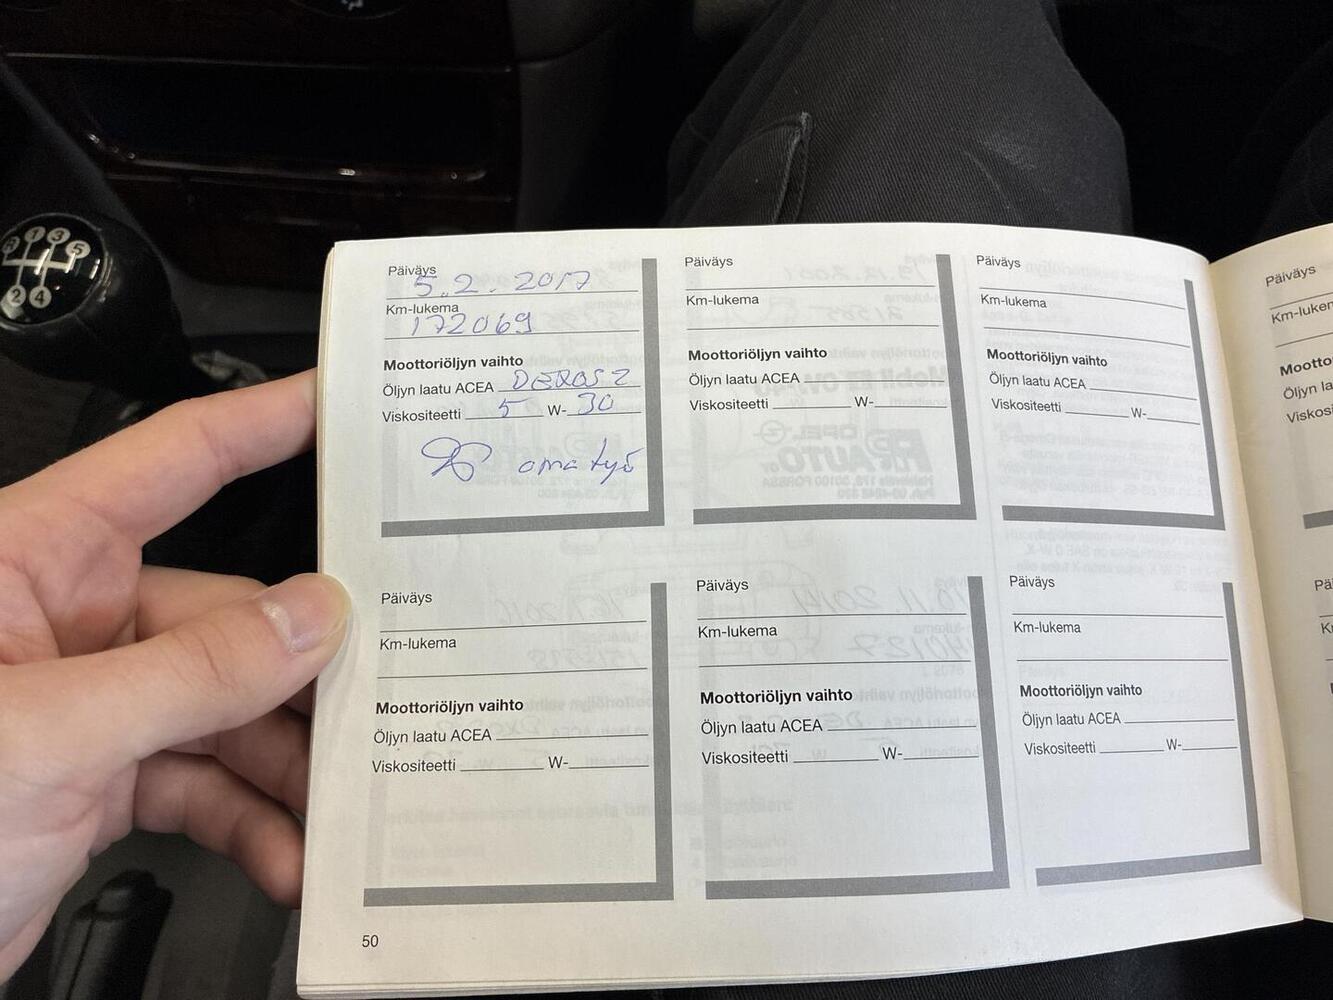 Päiväys
5.2.2017
Km-lukema
172069
Moottoriöljyn vaihto
Öljyn laatu ACEA DEXOS 2
Viskositeetti 5 W- 30
oma työ
Päiväys
Km-lukema
Moottoriöljyn vaihto
Öljyn laatu ACEA
Viskositeetti W-
Päiväys
Km-lukema
Moottoriöljyn vaihto
Öljyn laatu ACEA
Viskositeetti W-
Päiväys
Km-lukema
Moottoriöljyn vaihto
Öljyn laatu ACEA
Viskositeetti W-
Päiväys
Km-lukema
Moottoriöljyn vaihto
Öljyn laatu ACEA
Viskositeetti W-
Päiväys
Km-lukema
Moottoriöljyn vaihto
Öljyn laatu ACEA
Viskositeetti W-
50
Päiväys
1 3 5
2 4